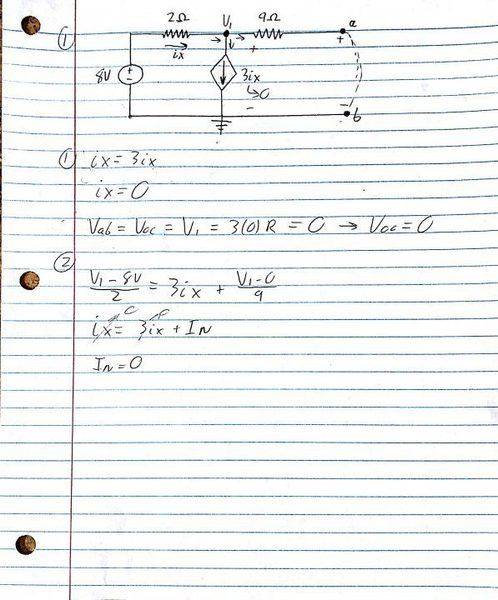 ①
2Ω V₁ 9Ω a
ix + +
8V + − 3ix
↳0
− − b
① ix = 3ix
ix = 0
Vab = Voc = V₁ = 3(0) R = 0 → Voc = 0
②
V₁ - 8V / 2 = 3ix + V₁ - 0 / 9
ix = 3ix + IN
IN = 0